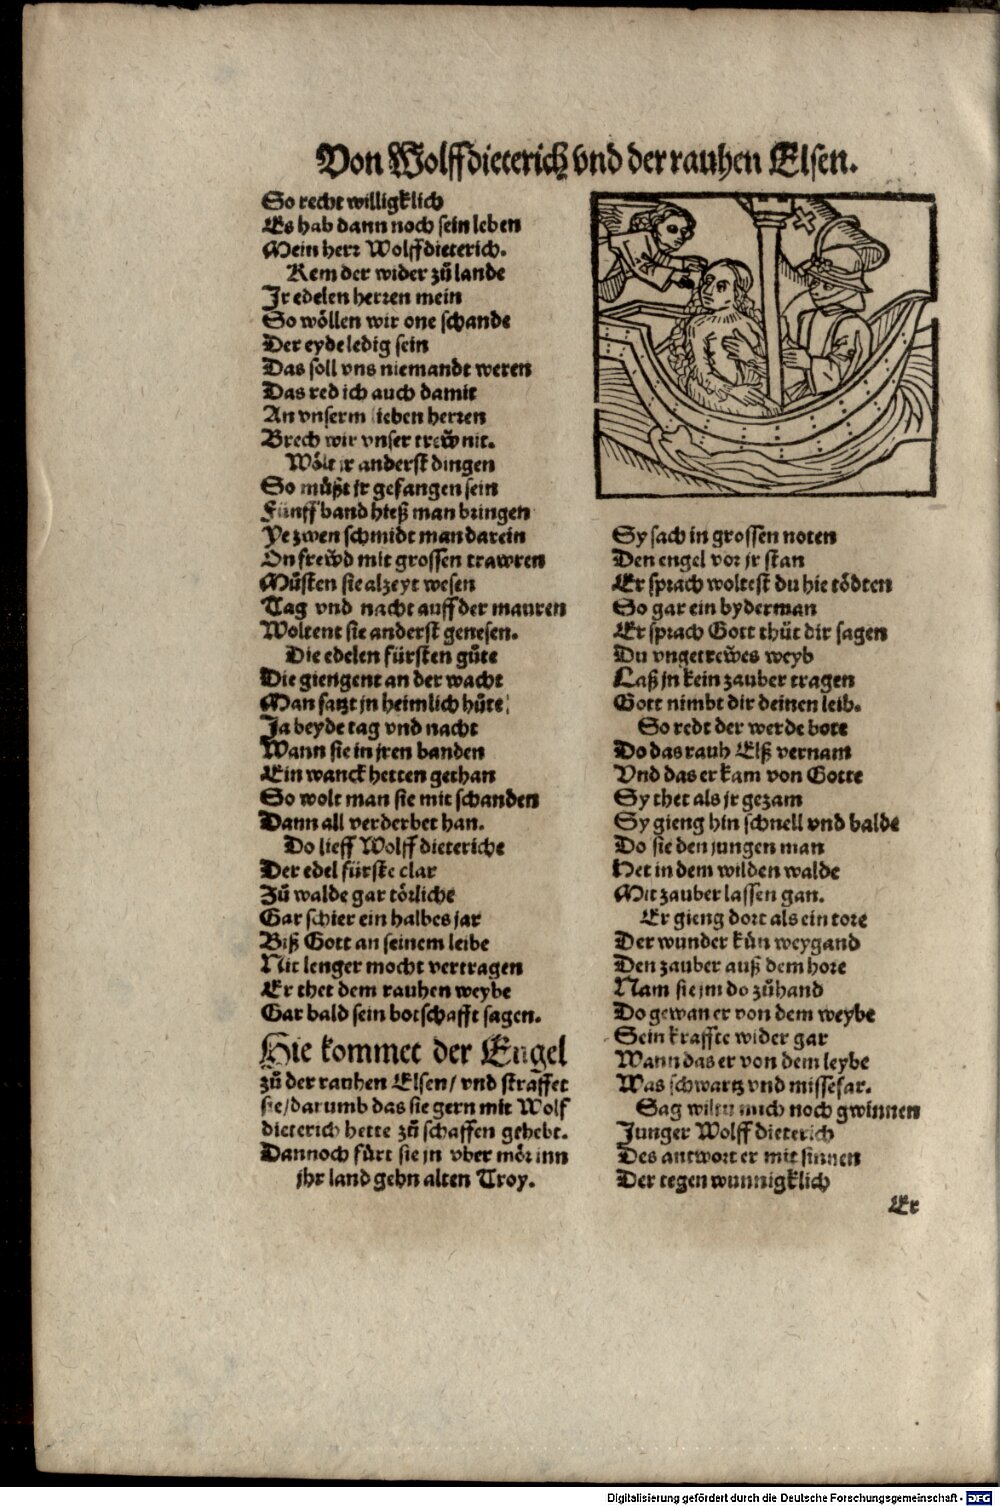 Von Wolffdieterich vnd der rauhen Elsen.
So recht willigklich
Es hab dann noch sein leben
Mein herr Wolffdieterich.
Kem der wider zů lande
Jr edelen herren mein
So wöllen wir one schande
Der eyde ledig sein
Das söll vns niemandt weren
Das red ich auch damit
An vnserm lieben herren
Brech wir vnser trew̃ nit.
Wölt jr anderst dingen
So müßt jr gefangen sein
Fünff band hieß man bringen
Ye zwen schmidt man darein
On frew̃d mit grossen trawren
Můsten sie alzeyt wesen
Tag vnd nacht auff der mauren
Woltent sie anderst genesen.
Die edelen fürsten gůte
Die giengent an der wacht
Man satzt jn heimlich hůte
Ja beyde tag vnd nacht
Wann sie in jren banden
Ein wanck hetten gethan
So wolt man sie mit schanden
Dann all verderbet han.
Do lieff Wolff dieteriche
Der edel fürste clar
Zů walde gar törliche
Gar schier ein halbes jar
Biß Gott an seinem leibe
Nit lenger mocht vertragen
Er thet dem rauhen weybe
Gar bald sein botschafft sagen.
Hie kommet der Engel
zů der rauhen Elsen / vnd straffet
sie / darumb das sie gern mit Wolf
dieterich hette zů schaffen gehebt.
Dannoch fůrt sie jn vber mör inn
jhr land gehn alten Troy.
Sy sach in grossen noten
Den engel vor jr stan
Er sprach woltest du hie tödten
So gar ein byderman
Er sprach Gott thůt dir sagen
Du vngetrew̃es weyb
Laß jn kein zauber tragen
Gott nimbt dir deinen leib.
So redt der werde bote
Do das rauh Elß vernam
Vnd das er kam von Gotte
Sy thet als jr gezam
Sy gieng hin schnell vnd balde
Do sie den jungen man
Het in dem wilden walde
Mit zauber lassen gan.
Er gieng dort als ein tore
Der wunder kün weygand
Den zauber auß dem hore
Nam sie jm do zůhand
Do gewan er von dem weybe
Sein kraffte wider gar
Wann das er von dem leybe
Was schwartz vnd missefar.
Sag wiltu mich noch gwinnen
Junger Wolff dieterich
Des antwort er mit sinnen
Der tegen wunnigklich
Er
Digitalisierung gefördert durch die Deutsche Forschungsgemeinschaft - DFG